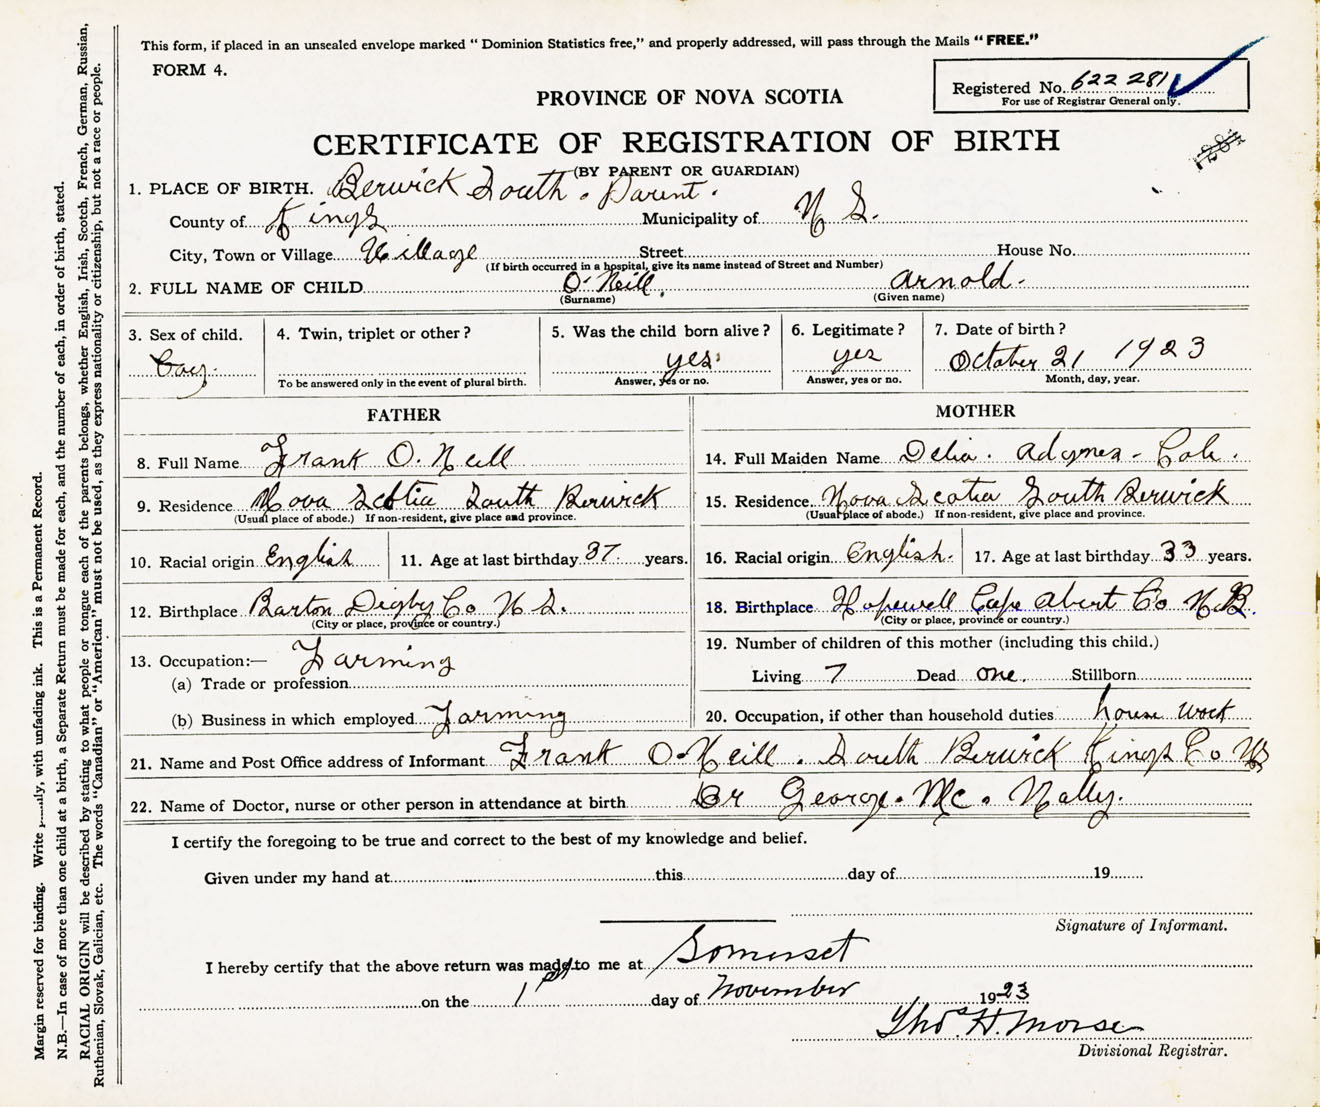 This form, if placed in an unsealed envelope marked “ Dominion Statistics free,” and properly addressed, will pass through the Mails “ FREE.”
FORM 4.
Registered No. 622 281
For use of Registrar General only.
PROVINCE OF NOVA SCOTIA
CERTIFICATE OF REGISTRATION OF BIRTH
(BY PARENT OR GUARDIAN)
1. PLACE OF BIRTH. Berwick South . Parent .
County of Kings Municipality of N S.
City, Town or Village Village Street House No.
(If birth occurred in a hospital, give its name instead of Street and Number)
2. FULL NAME OF CHILD O'Neill. Arnold.
(Surname) (Given name)
3. Sex of child. 4. Twin, triplet or other ? 5. Was the child born alive ? 6. Legitimate ? 7. Date of birth ?
Boy. yes yes October 21 1923
To be answered only in the event of plural birth. Answer, yes or no. Answer, yes or no. Month, day, year.
FATHER MOTHER
8. Full Name Frank O. Neill 14. Full Maiden Name Delia .
9. Residence Nova Scotia South Berwick 15. Residence Nova Scotia South Berwick
(Usual place of abode.) If non-resident, give place and province. (Usual place of abode.) If non-resident, give place and province.
10. Racial origin English 11. Age at last birthday 37 years. 16. Racial origin English. 17. Age at last birthday 33 years.
12. Birthplace Barton Digby Co N S. 18. Birthplace Hopewell Cape Abert Co N.B.
(City or place, province or country.) (City or place, province or country.)
13. Occupation:— Farming 19. Number of children of this mother (including this child.)
(a) Trade or profession Living 7 Dead one. Stillborn
(b) Business in which employed Farming 20. Occupation, if other than household duties house work
21. Name and Post Office address of Informant Frank O-Neill . South Berwick Kings Co NS
22. Name of Doctor, nurse or other person in attendance at birth Dr George. Mc. Nally.
I certify the foregoing to be true and correct to the best of my knowledge and belief.
Given under my hand at this day of 19
Signature of Informant.
I hereby certify that the above return was made to me at Somerset
on the 1st day of November 1923
Thos. H. Morse
Divisional Registrar.
Margin reserved for binding. Write with unfading ink. This is a Permanent Record.
N.B.—In case of more than one child at a birth, a Separate Return must be made for each, and the number of each, in order of birth, stated.
RACIAL ORIGIN will be described by stating to what people or tongue each of the parents belongs, whether English, Irish, Scotch, French, German, Russian,
Ruthenian, Slovak, Galician, etc. The words “Canadian” or “American” must not be used, as they express nationality or citizenship, but not a race or people.